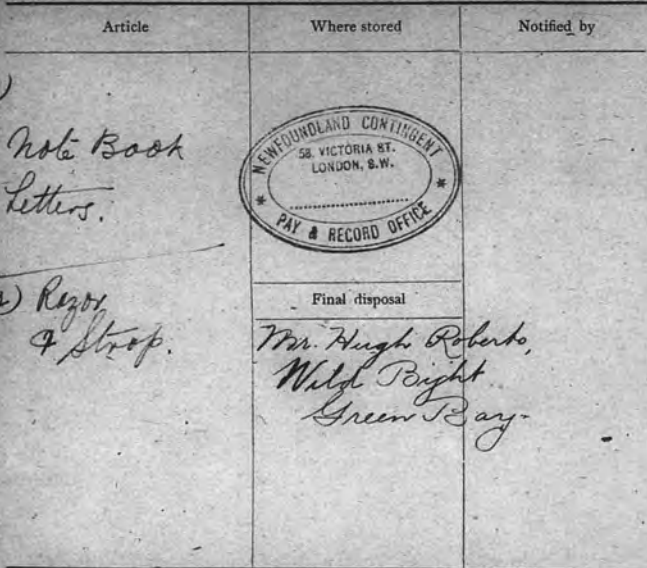 Article
Where stored
Notified by
)
Note Book
Letters.
NEWFOUNDLAND CONTINGENT
58, VICTORIA ST.
LONDON, S.W.
PAY & RECORD OFFICE
) Razor
& Strop.
Final disposal
Mr. Hugh Roberts,
Wild Bight
Green Bay-